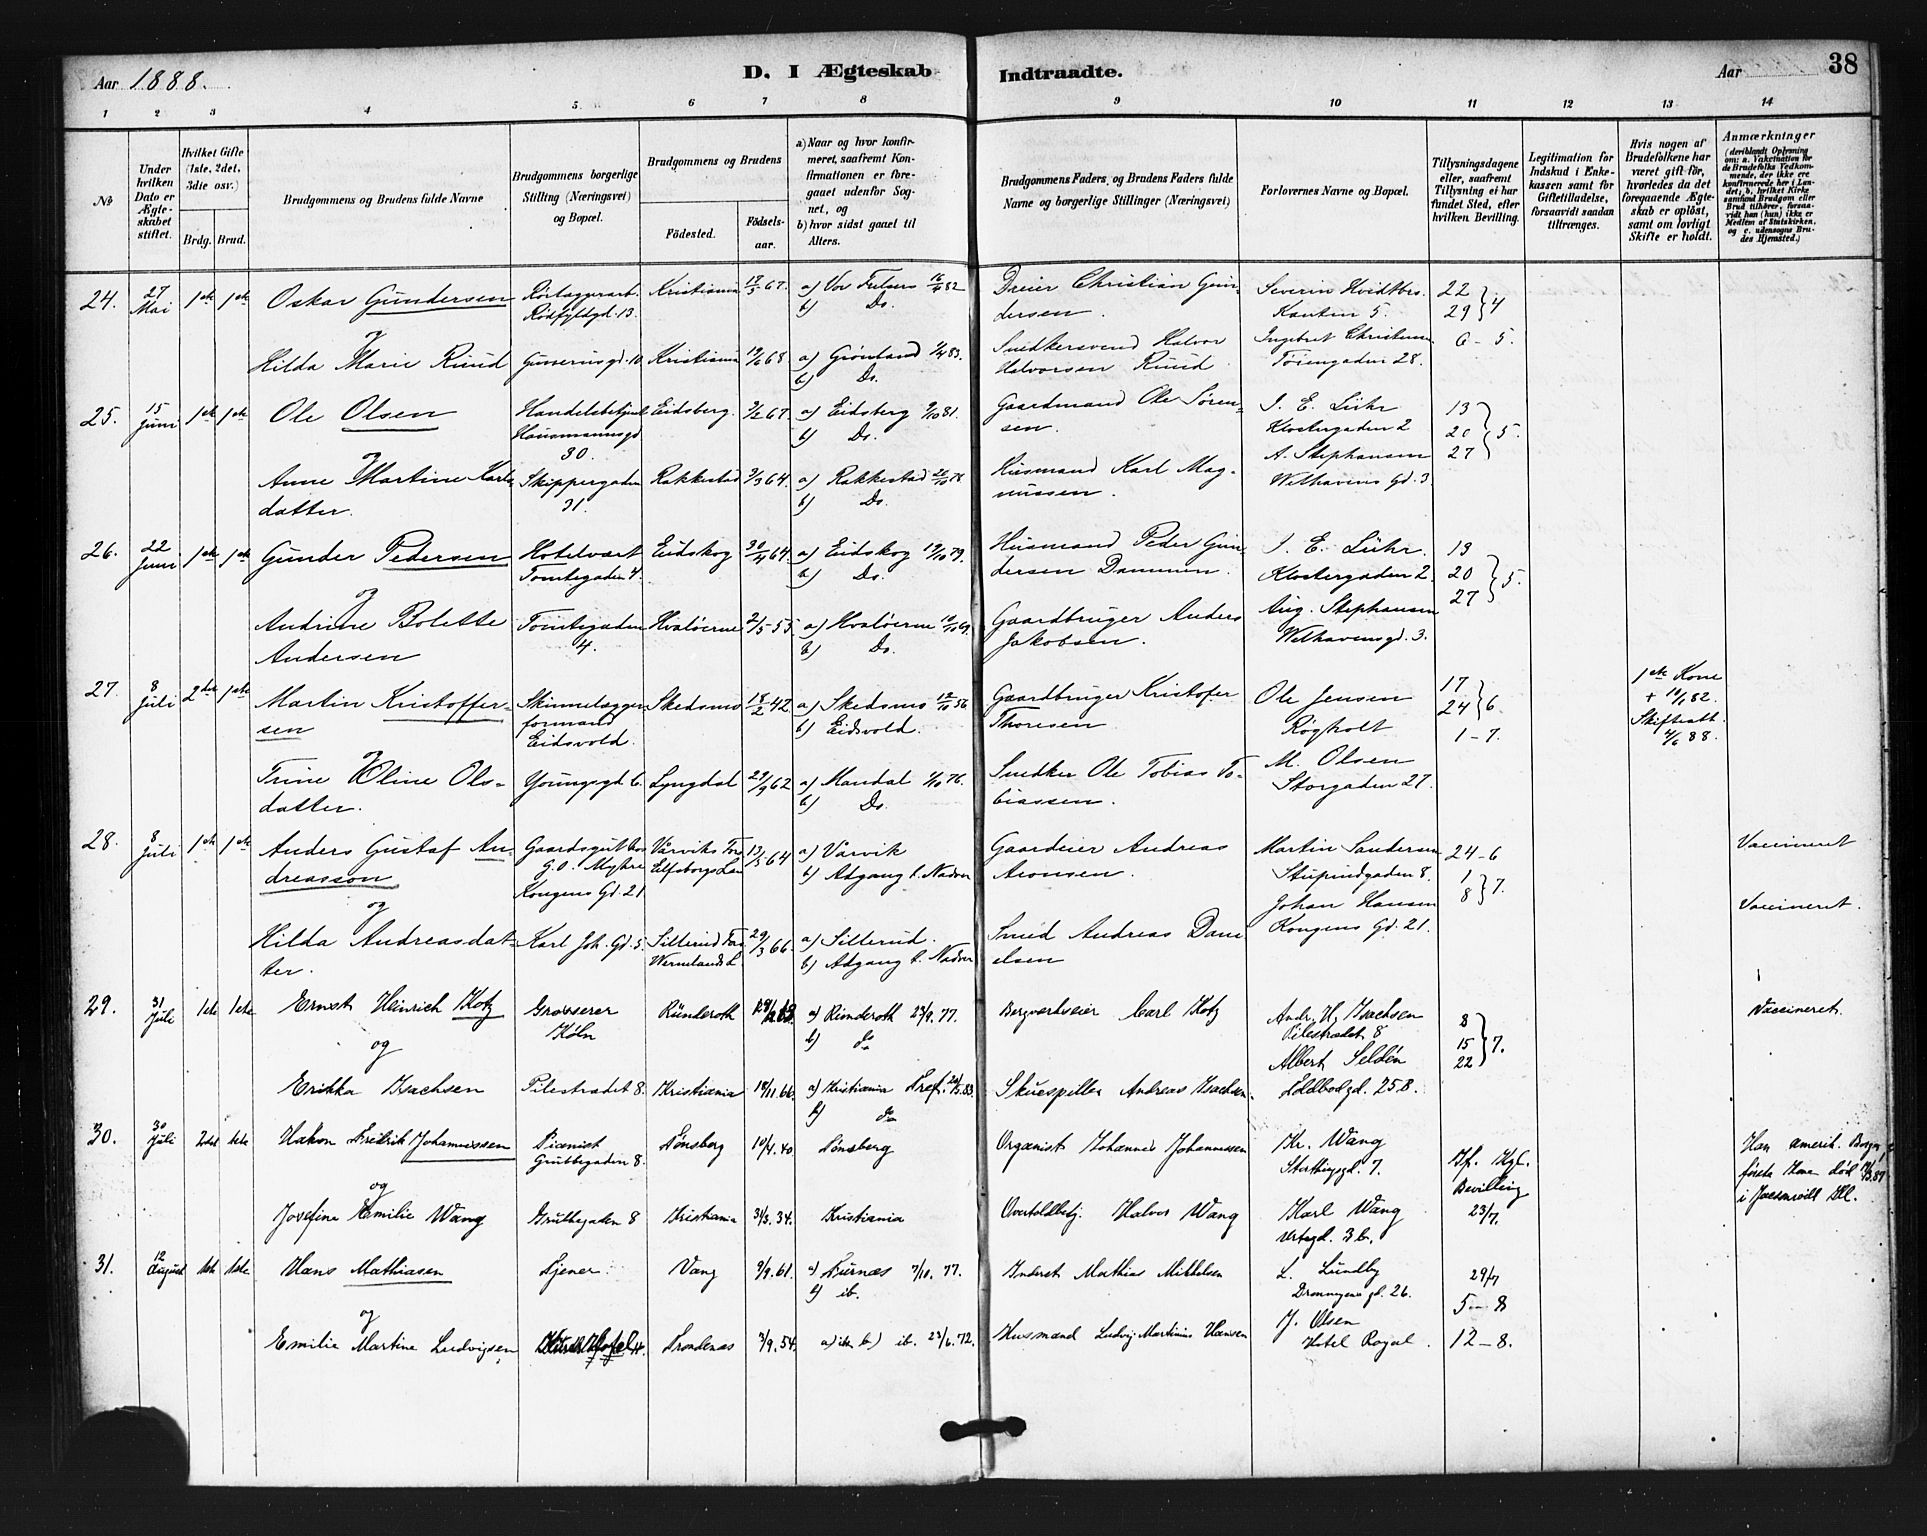 Aar 1888.
D. I Ægteskab Indtraadte.
Aar 38
1 2 3 4 5. 6 7 8 9 10 11 12 13 14
No
Under hvilken Dato er Ægteskabet stiftet.
Hvilket Gifte (1ste, 2det, 3die osv.)
Brdg. Brud.
Brudgommens og Brudens fulde Navne
Brudgommens borgerlige Stilling (Næringsvei) og Bopæl.
Brudgommens og Brudens
Fødested.
Fødselsaar.
a) Naar og hvor konfirmeret, saafremt Konfirmationen er foregaaet udenfor Sognet, og
b) hvor sidst gaaet til Alters.
Brudgommens Faders og Brudens Faders fulde Navne og borgerlige Stillinger (Næringsvei)
Forlovernes Navne og Bopæl.
Tillysningsdagene eller, saafremt Tillysning ei har fundet Sted, efter hvilken Bevilling.
Legitimation for Indskud i Enkekassen samt for Giftetilladelse, forsaavidt saadan tiltrænges.
Hvis nogen af Brudefolkene har været gift før, hvorledes da det foregaaende Ægteskab er opløst, samt om lovligt Skifte er holdt.
Anmærkninger
(deriblandt Oplysning om: a. Vakcination for de Brudefolks Vedkommende, der ikke ere konfirmerede her i Landet; b. hvilket Kirkesamfund Brudgom eller Brud tilhører, forsaavidt han (hun) ikke er Medlem af Statskirken, og c. udensogns Brudes Hjemsted.)
24. 27 Mai 1ste 1ste Oskar Gundersen Rørlæggerarb. Rødfyldgd. 13. Kristiania 18/3 67. a) Vor Frelsers 16/4 82 b) Do. Dreier Christian Gundersen. Severin Hvidtbro. Kanten 5. 22 29 } 4
og
Hilda Marie Ruud Gunerusgd. 10 Kristiania 19/6 68 a) Grønland 83. b) Do. Snedkersvend Halvor Halvorsen Ruud. Ingebret Christensen Tøiengaden 28. 6 - 5.
25. 15 Juni 1ste 1ste Ole Olsen Handelsbetjent Hausmannsgd 30. Eidsberg. 67. a) Eidsberg 9/10 81. b) Do. Gaardmand Ole Sørensen. J. E. Lühr Klostergaden 2 13 20 27 } 5.
og
Anne Martine Karlsdatter. Skippergaden 31. Rakkestad 7/3 64. a) Rakkestad 20/10 78. b) Do. Husmand Karl Magnussen. A. Stephansen Welhavens Gd. 3.
26. 22 Juni 1ste 1ste Gunder Pedersen Hotelvært Tomtegaden 4. Eidskog 30/4 64. a) Eidskog 19/10 79. b) Do. Husmand Peder Gundersen Dammen. J. E. Lühr. Klostergaden 2. 13 20 27 } 5.
og
Andrine Bolette Andersen Tomtegaden 4. Hvaløerne 2/5 55 a) Hvaløerne 10/10 69. b) Do. Gaardbruger Anders Jakobsen. Aug. Stephansen Welhavensgd. 3.
27. 8 Juli 2den 1ste Martin Kristoffersen Skinnelægger formand Eidsvold. Skedsmo 18/2 42. a) Skedsmo 12/10 56 b) Eidsvold. Gaardbruger Kristofer Thoresen Ole Jensen Røgholt 17 24 } 6. 1 - 7. 1ste Kone + 10/1 82. Skifteatt. 4/6 88.
og
Trine Oline Olsdatter. Youngsgd. 6. Lyngdal 29/9 62 a) Mandal 1/10 76. b) Do. Snedker Ole Tobias Tobiassen. M. Olsen Storgaden 27.
28. 8 Juli 1ste 1ste Anders Gustaf Andreasson Gaardsgut hos G. O. Myhre Kongens Gd. 21 Vårviks Fors. Elfsborgs Län 13/5 64 a) Vårvik b) Adgang t. Nadver Gaardeier Andreas Aronsen. Martin Sandersen Stupindgaden 8. 24 - 6 1 8 } 7. Vaccineret
og
Hilda Andreasdatter. Karl Joh. Gd. 5 Sillerud Fors Wermlands L. 29/3 66. a) Sillerud. b) Adgang t. Nadver Smed Andreas Danielsen Johan Hansen Kongens Gd. 21. Vaccineret.
29. 31 Juli 1ste 1ste Ernst Heinrich Kotz Grosserer Köln Ründeroth a) Ründeroth 23/9. 77. b) do Bergværkseier Carl Kotz Andr. H. Isachsen Pilestrædet 8 8 15 22 } 7. Vaccineret.
og
Erikka Isachsen Pilestrædet 8. Kristiania 18/11 66. a) Kristiania Tref. 83. b) do Skuespiller Andreas Isachsen. Albert Seldén Toldbodgd. 25 B.
30. 30 Juli 2det 1ste Hakon Fredrik Johannessen Pianist Grubbegaden 8. Tønsberg 10/4. 40 Tønsberg Organist Johannes Johannessen Kr. Wang Storthingsgd. 7. Kgl. Bevilling 23/7. Han amerik. Borger, første Kone død 87 i Ill.
og
Josefine Emilie Wang Grubbegaden 8 Kristiania 31/3. 34. Kristiania Overtoldbetj. Halvor Wang Karl Wang
31. 12 August 1ste 1ste Hans Mathiasen Tjener. Vang 9/9. 61. a) Furnæs 7/10. 77. b) ib. Inderst Mathias Mikkelsen L. Lundby Dronningens gd. 26. 29/7 5 - 8 12 - 8.
og
Emilie Martine Ludvigsen Trondenæs 3/9. 54. ib. 23/6. 72. Husmand Ludvig Martinius Hansen J. Olsen Hotel Royal.